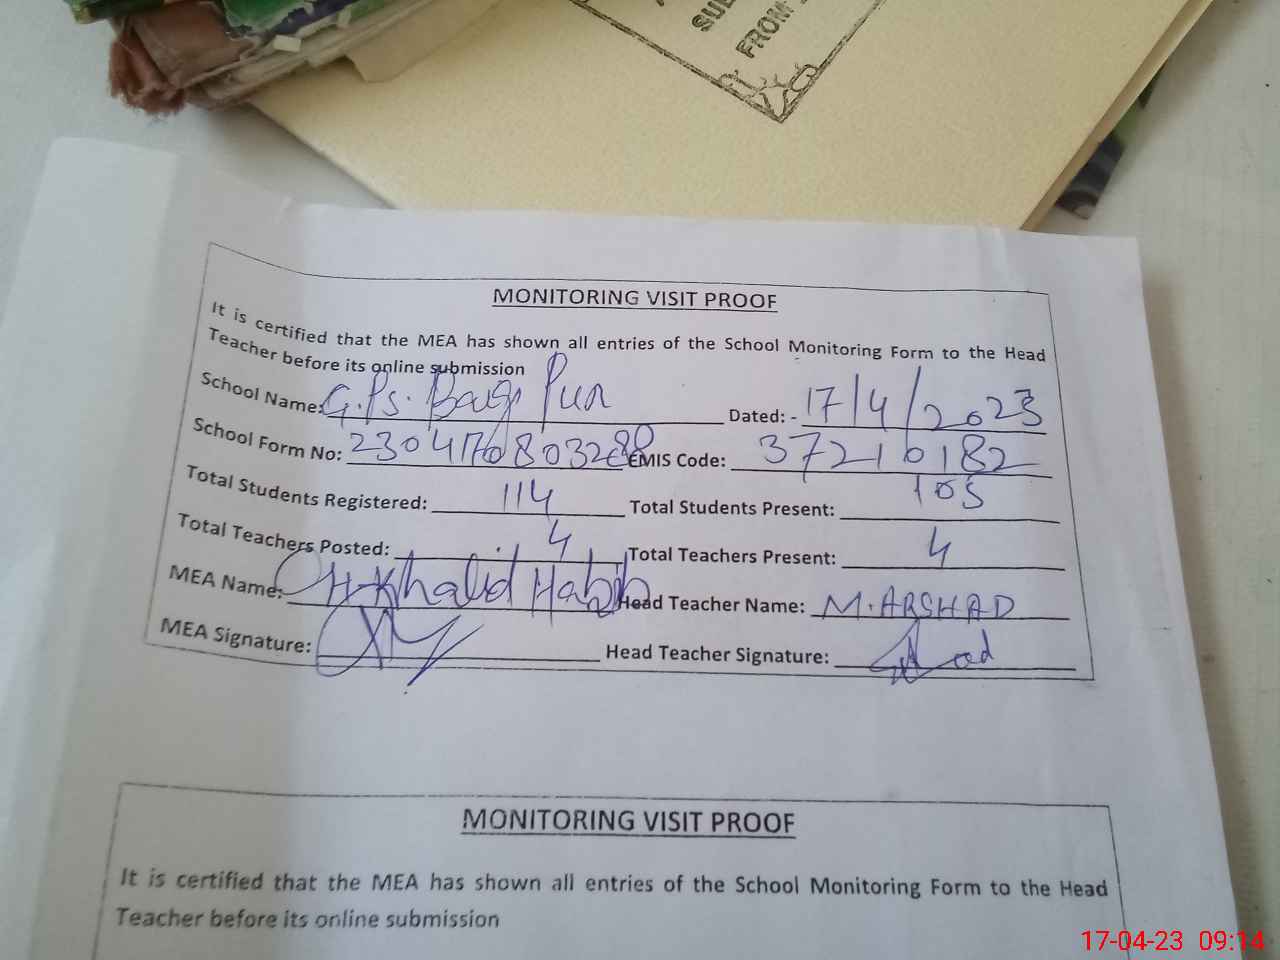 SUB
FROM
MONITORING VISIT PROOF
It is certified that the MEA has shown all entries of the School Monitoring Form to the Head
Teacher before its online submission
School Name: G.Ps. Baigi Pur Dated: - 17/4/2023
School Form No: EMIS Code: 37210182
Total Students Registered: 114 Total Students Present: 105
Total Teachers Posted: 4 Total Teachers Present: 4
MEA Name: CH-Khalid Habib Head Teacher Name: M.ARSHAD
MEA Signature: Head Teacher Signature:
MONITORING VISIT PROOF
It is certified that the MEA has shown all entries of the School Monitoring Form to the Head
Teacher before its online submission
17-04-23 09:14